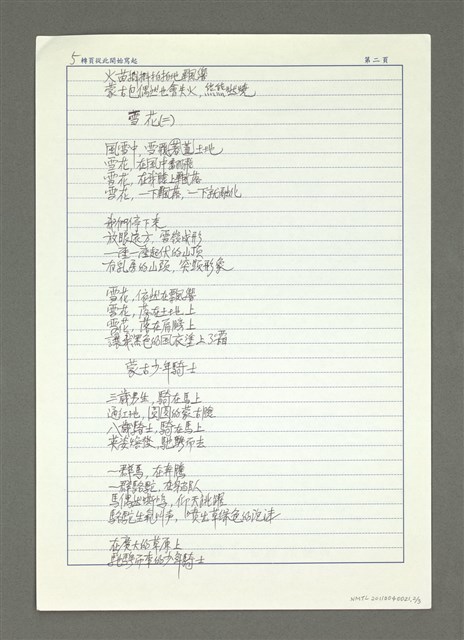 5 轉頁從此開始寫起
第二頁
火苗 飄灑
蒙古包偶然也會失火,熊熊燃燒
雪花(二)
風雪中,雪覆蓋土地
雪花,在風中翻飛
雪花,在 上飄落
雪花,一下飄落,一下就融化
我們停下來
放眼遠方,雪嶺成形
一座一座起伏的山頂
有乳房的山頭,突顯形象
雪花,依然在飄灑
雪花,落在土地上
雪花,落在肩膀上
讓我黑色的風衣塗上了霜
蒙古少年騎士
三歲男生,騎在馬上
通紅地,圓圓的蒙古臉
八歲騎士,騎在馬上
英姿煥發,馳騁而去
一群馬,在奔騰
一群駱駝,在 隊
馬偶然嘶鳴,仰天跳躍
駱駝生氣叫聲,噴出草綠色的泡沫
在廣大的草原上
馳騁而來的少年騎士
NMTL20110040021,2/3